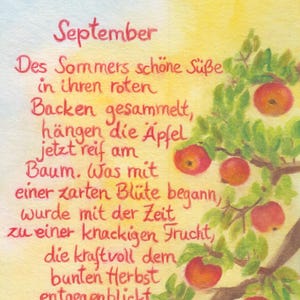 September
Des Sommers schöne Süße
in ihren roten
Backen gesammelt,
hängen die Äpfel
jetzt reif am
Baum. Was mit
einer zarten Blüte begann,
wurde mit der Zeit
zu einer knackigen Frucht,
die kraftvoll dem
bunten Herbst
entgegenblickt.